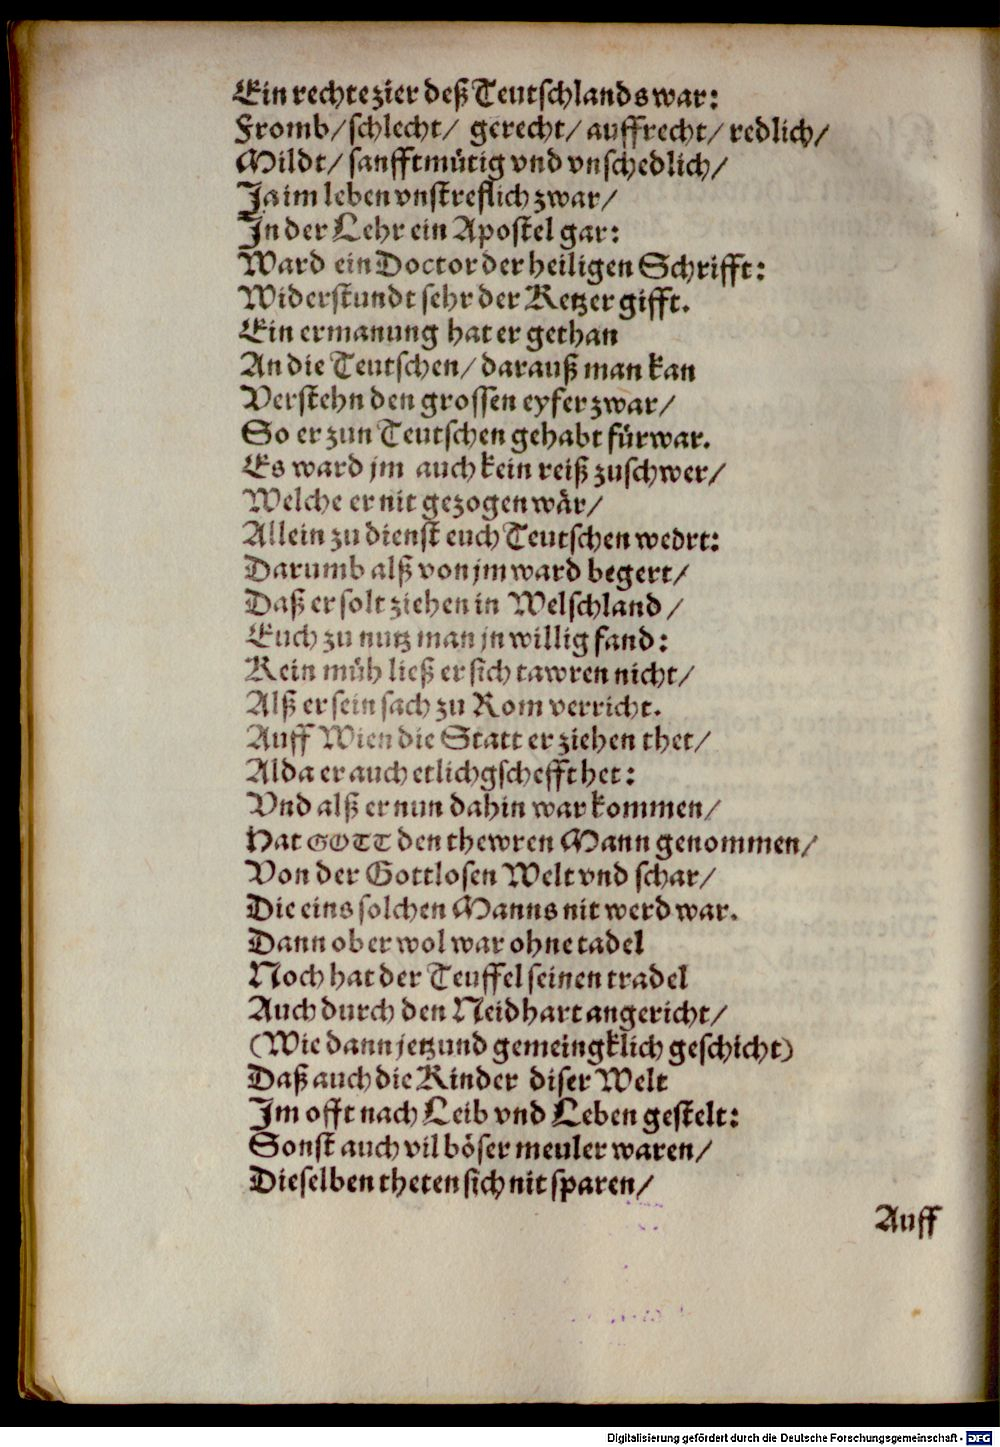 Ein rechte zier deß Teutschlands war:
Fromb/ schlecht/ gerecht/ auffrecht/ redlich/
Mildt/ sanfftmütig vnd vnschedlich/
Ja im leben vnstreflich zwar/
In der Lehr ein Apostel gar:
Ward ein Doctor der heiligen Schrifft:
Widerstundt sehr der Ketzer gifft.
Ein ermanung hat er gethan
An die Teutschen/ darauß man kan
Verstehn den grossen eyfer zwar/
So er zun Teutschen gehabt fürwar.
Es ward jm auch kein reiß zuschwer/
Welche er nit gezogen wär/
Allein zu dienst euch Teutschen wedrt:
Darumb alß von jm ward begert/
Daß er solt ziehen in Welschland/
Euch zu nutz man jn willig fand:
Kein müh ließ er sich tawren nicht/
Alß er sein sach zu Rom verricht.
Auff Wien die Statt er ziehen thet/
Alda er auch etlich gschefft het:
Vnd alß er nun dahin war kommen/
Hat GOTT den thewren Mann genommen/
Von der Gottlosen Welt vnd schar/
Die eins solchen Manns nit werd war.
Dann ob er wol war ohne tadel
Noch hat der Teuffel seinen tradel
Auch durch den Neidhart angericht/
(Wie dann jetzund gemeingklich geschicht)
Daß auch die Kinder diser Welt
Im offt nach Leib vnd Leben gestelt:
Sonst auch vil böser meuler waren/
Dieselben theten sich nit sparen/
Auff
Digitalisierung gefördert durch die Deutsche Forschungsgemeinschaft - DFG